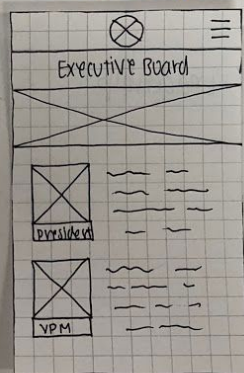 Executive Board
President
VPM